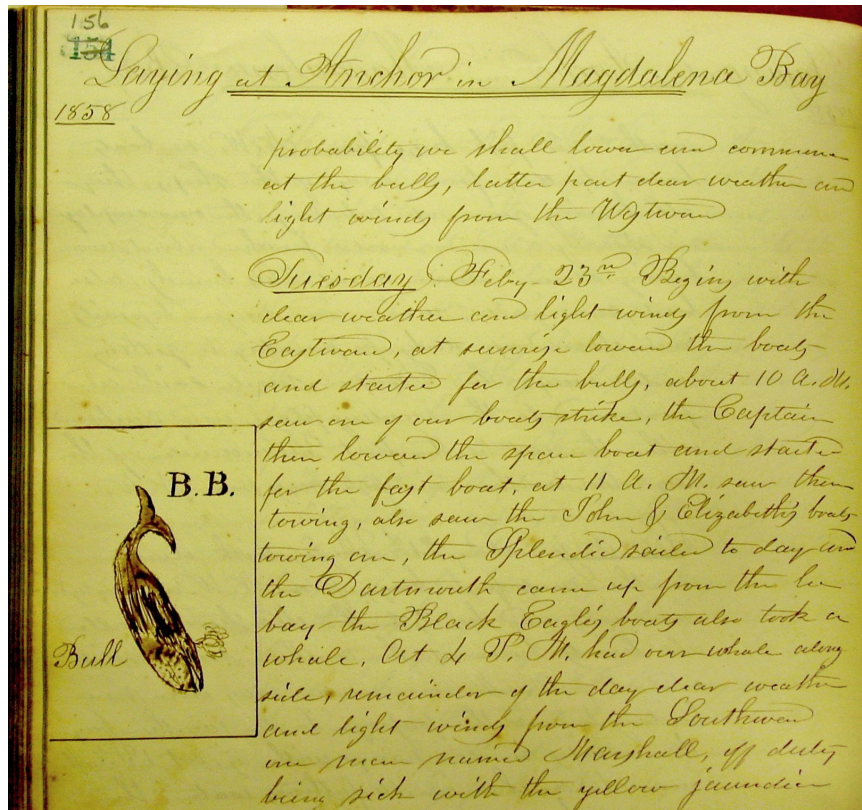 156
154
Laying at Anchor in Magdalena Bay
1858
probability we shall lower and commence
at the bulls, latter part clear weather and
light winds from the Westward
Tuesday Feby 23rd Begins with
clear weather and light winds from the
Eastward, at sunrise lowered the boats
and started for the bulls, about 10 A.M.
saw one of our boats strike, the Captain
then lowered the spare boat and started
for the fast boat, at 11 A.M. saw them
towing, also saw the John & Elizabeth's boats
towing one, the Splendid sailed to day and
the Dartmouth came up from the lee
bay the Black Eagle's boats also took a
whale, At 4 P.M. had our whale along
side, remainder of the day clear weather
and light winds from the Southward
one man named Marshall, off duty
being sick with the yellow jaundice
B.B.
Bull